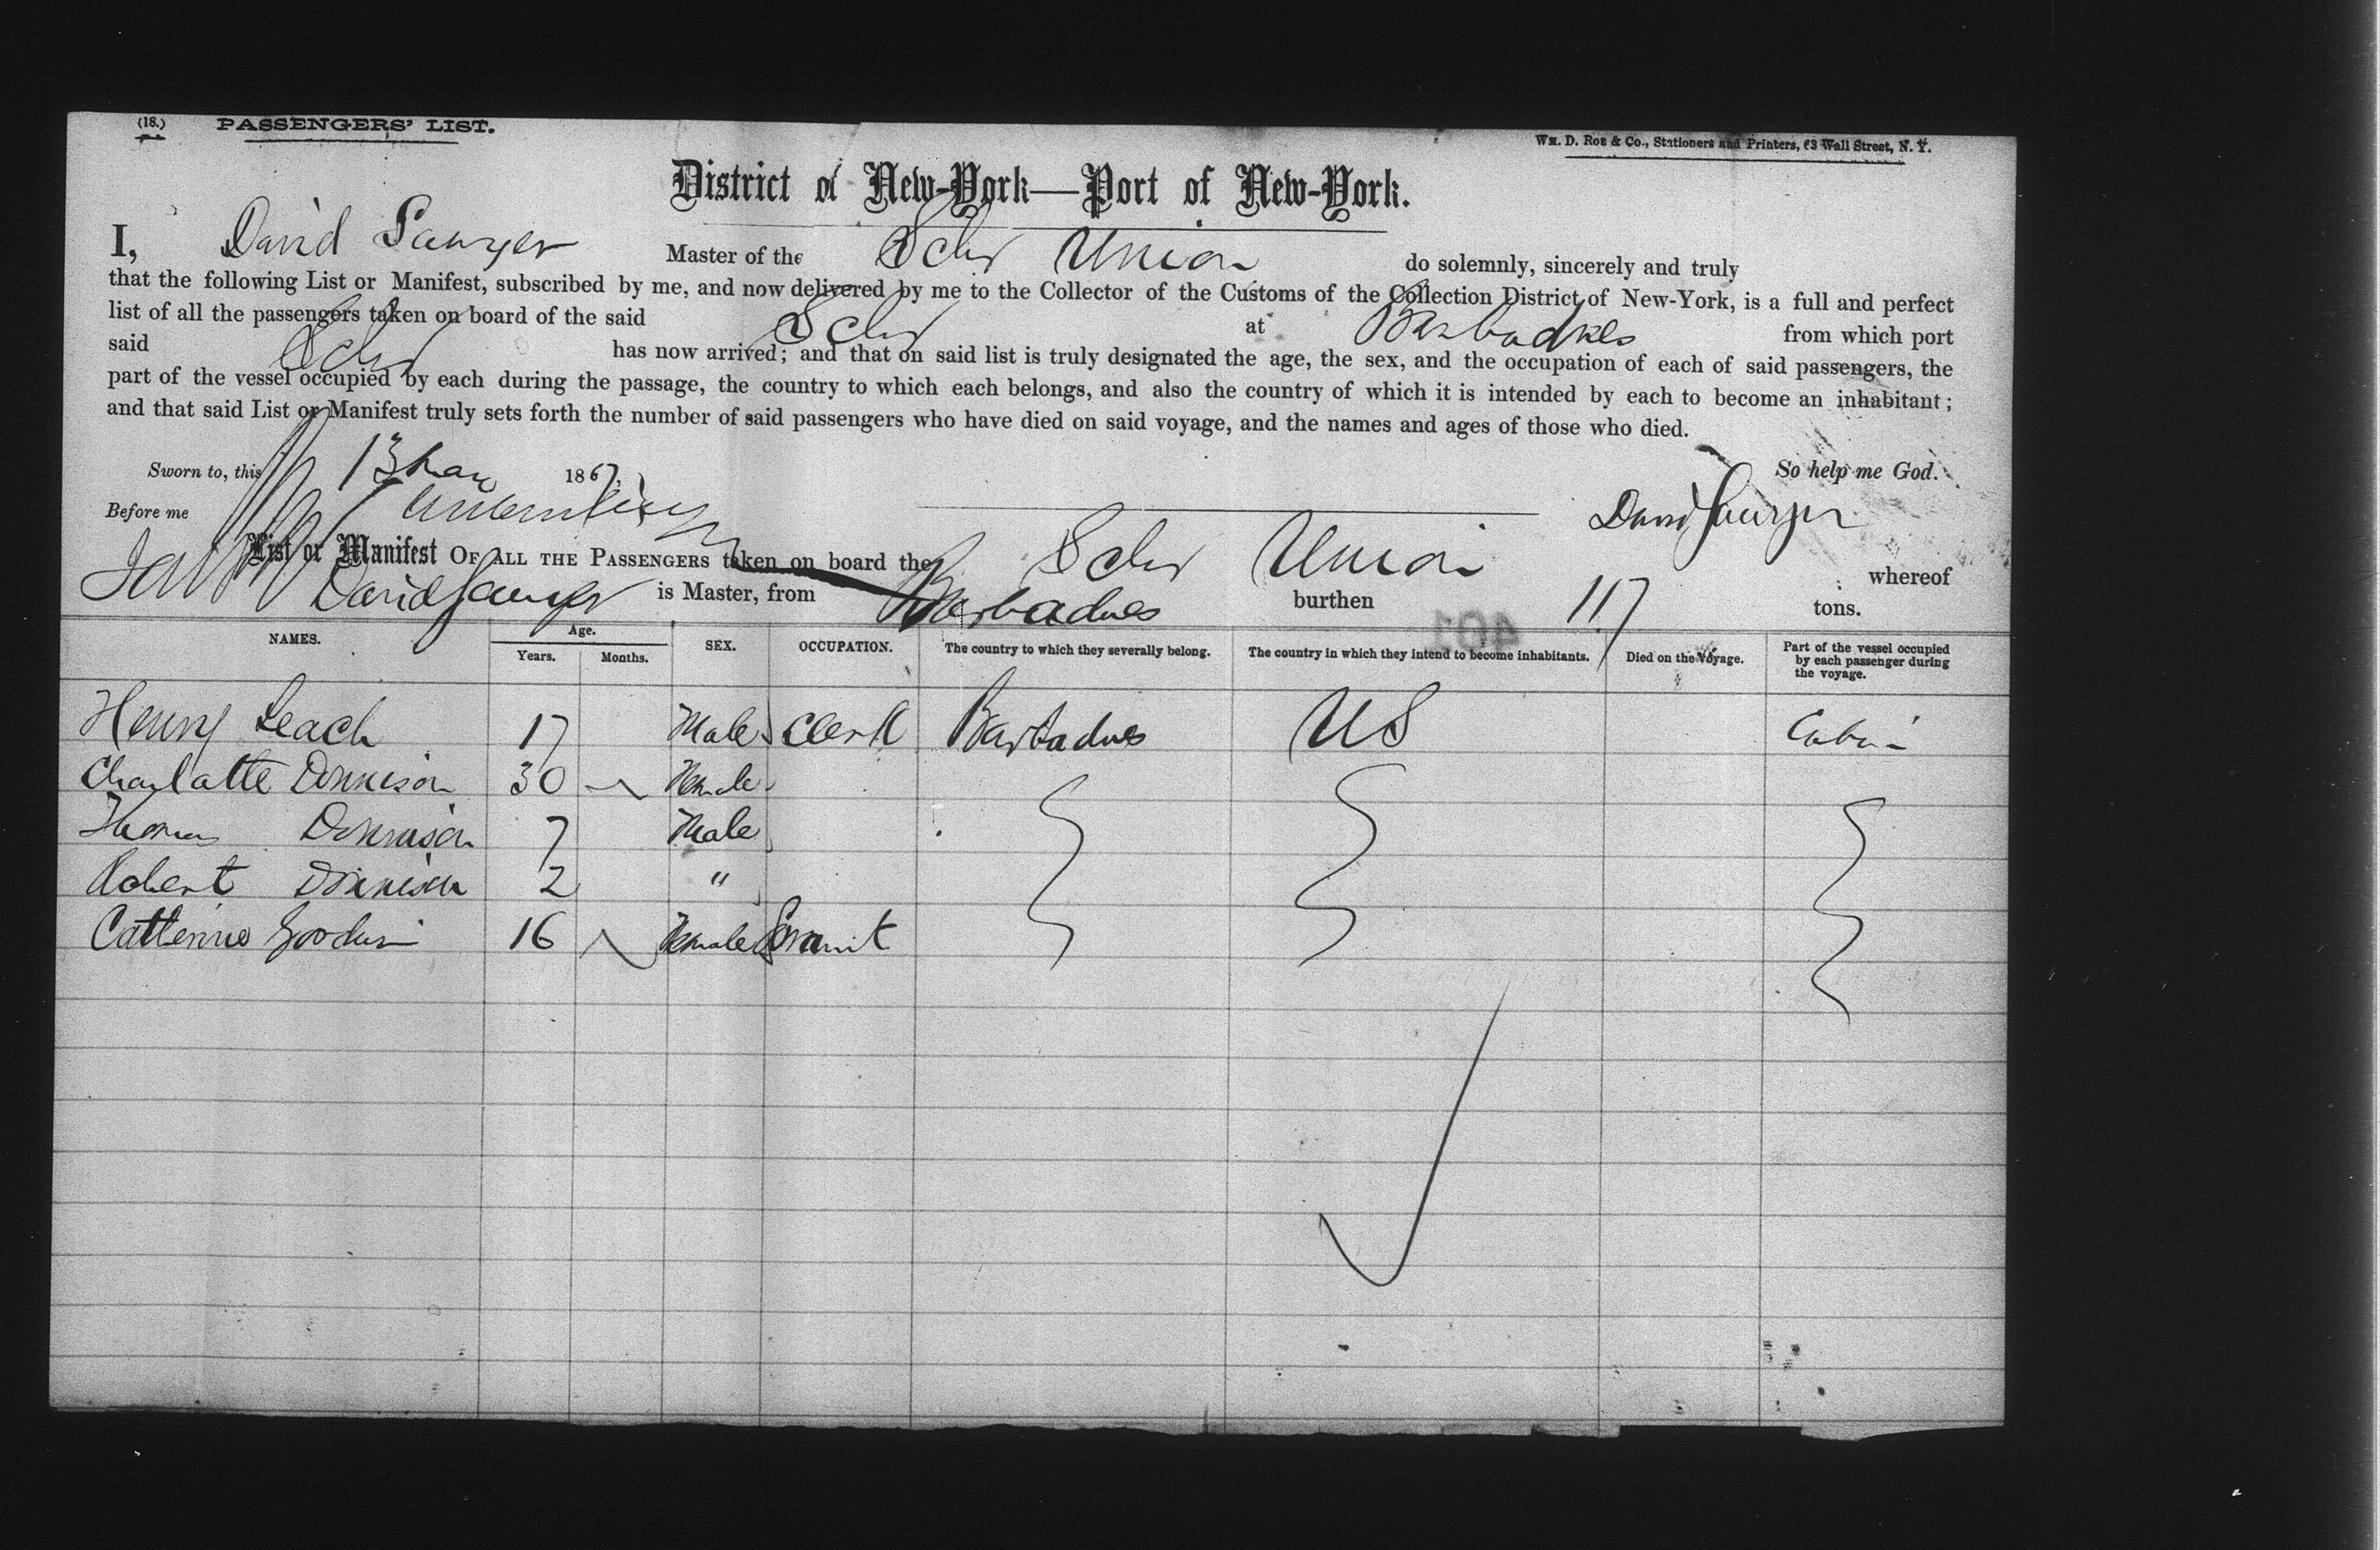 (18.) PASSENGERS' LIST.
Wm. D. Roe & Co., Stationers and Printers, 63 Wall Street, N. Y.
District of New-York—Port of New-York.
I, David Sawyer Master of the Schr Union do solemnly, sincerely and truly
that the following List or Manifest, subscribed by me, and now delivered by me to the Collector of the Customs of the Collection District of New-York, is a full and perfect
list of all the passengers taken on board of the said Schr at Barbadoes from which port
said Schr has now arrived; and that on said list is truly designated the age, the sex, and the occupation of each of said passengers, the
part of the vessel occupied by each during the passage, the country to which each belongs, and also the country of which it is intended by each to become an inhabitant;
and that said List or Manifest truly sets forth the number of said passengers who have died on said voyage, and the names and ages of those who died.
Sworn to, this 13 1867, So help me God.
Before me David Sawyer
List or Manifest OF ALL THE PASSENGERS taken on board the Schr Union whereof
David Sawyer is Master, from Barbadoes burthen 117 tons.
401
NAMES. Age. SEX. OCCUPATION. The country to which they severally belong. The country in which they intend to become inhabitants. Died on the Voyage. Part of the vessel occupied by each passenger during the voyage.
Years. Months.
Henry Leach 17 Male Clerk Barbadoes US Cabin
Charlatte Donnison 30 Female
Thomas Donnison 7 Male
Robert Donnison 2 "
Catterine Goodwin 16 Female Servant